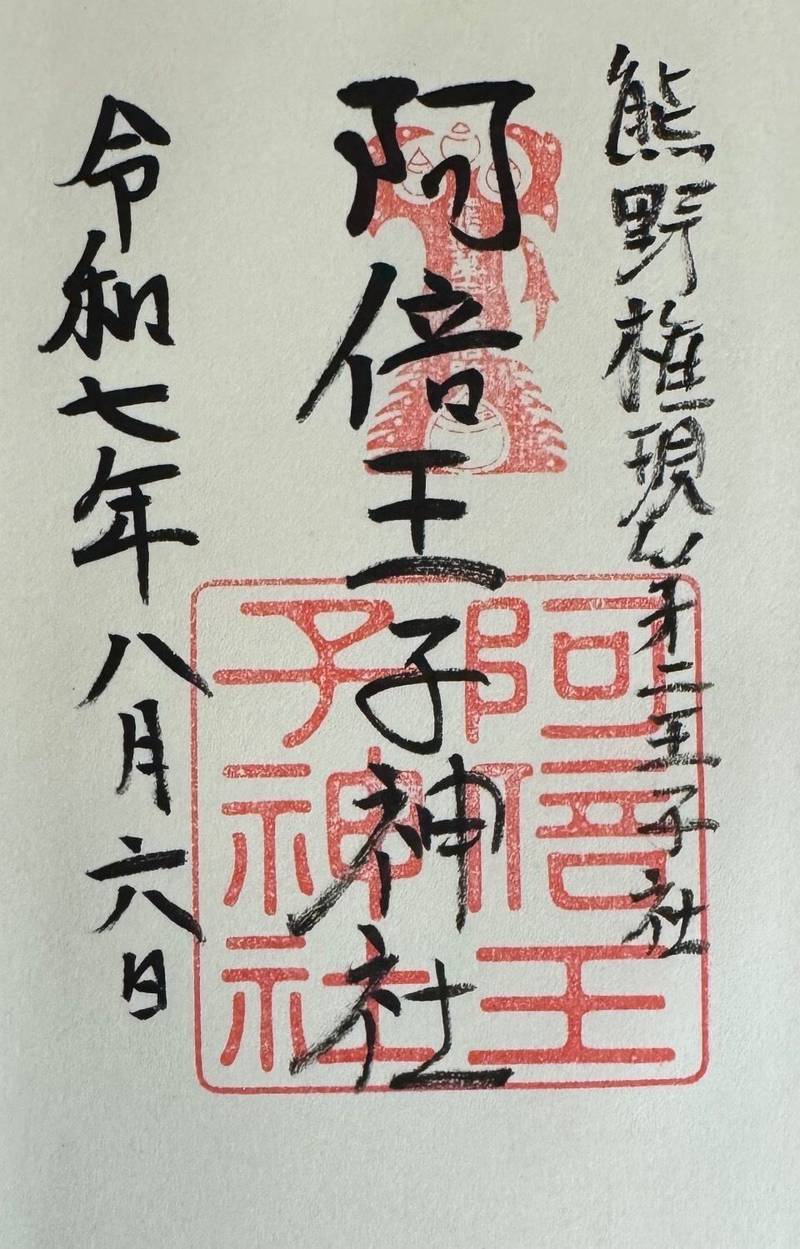 熊野権現第二王子社
阿倍王子神社
令和七年八月六日
阿倍王
子神社